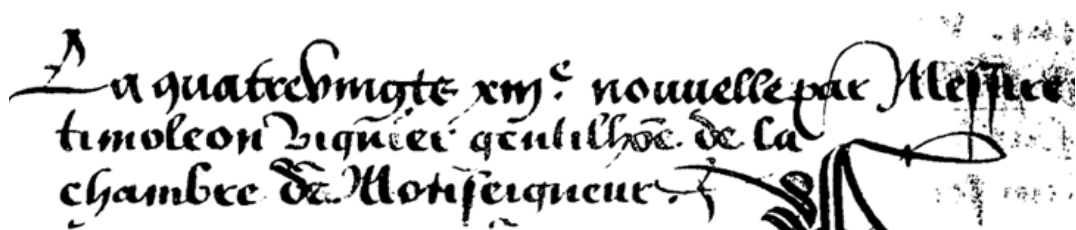 La quatrevingte xiij.e nouvelle par Messire
timoleon Vignier gentilhõe de la
chambre de Monseigneur.